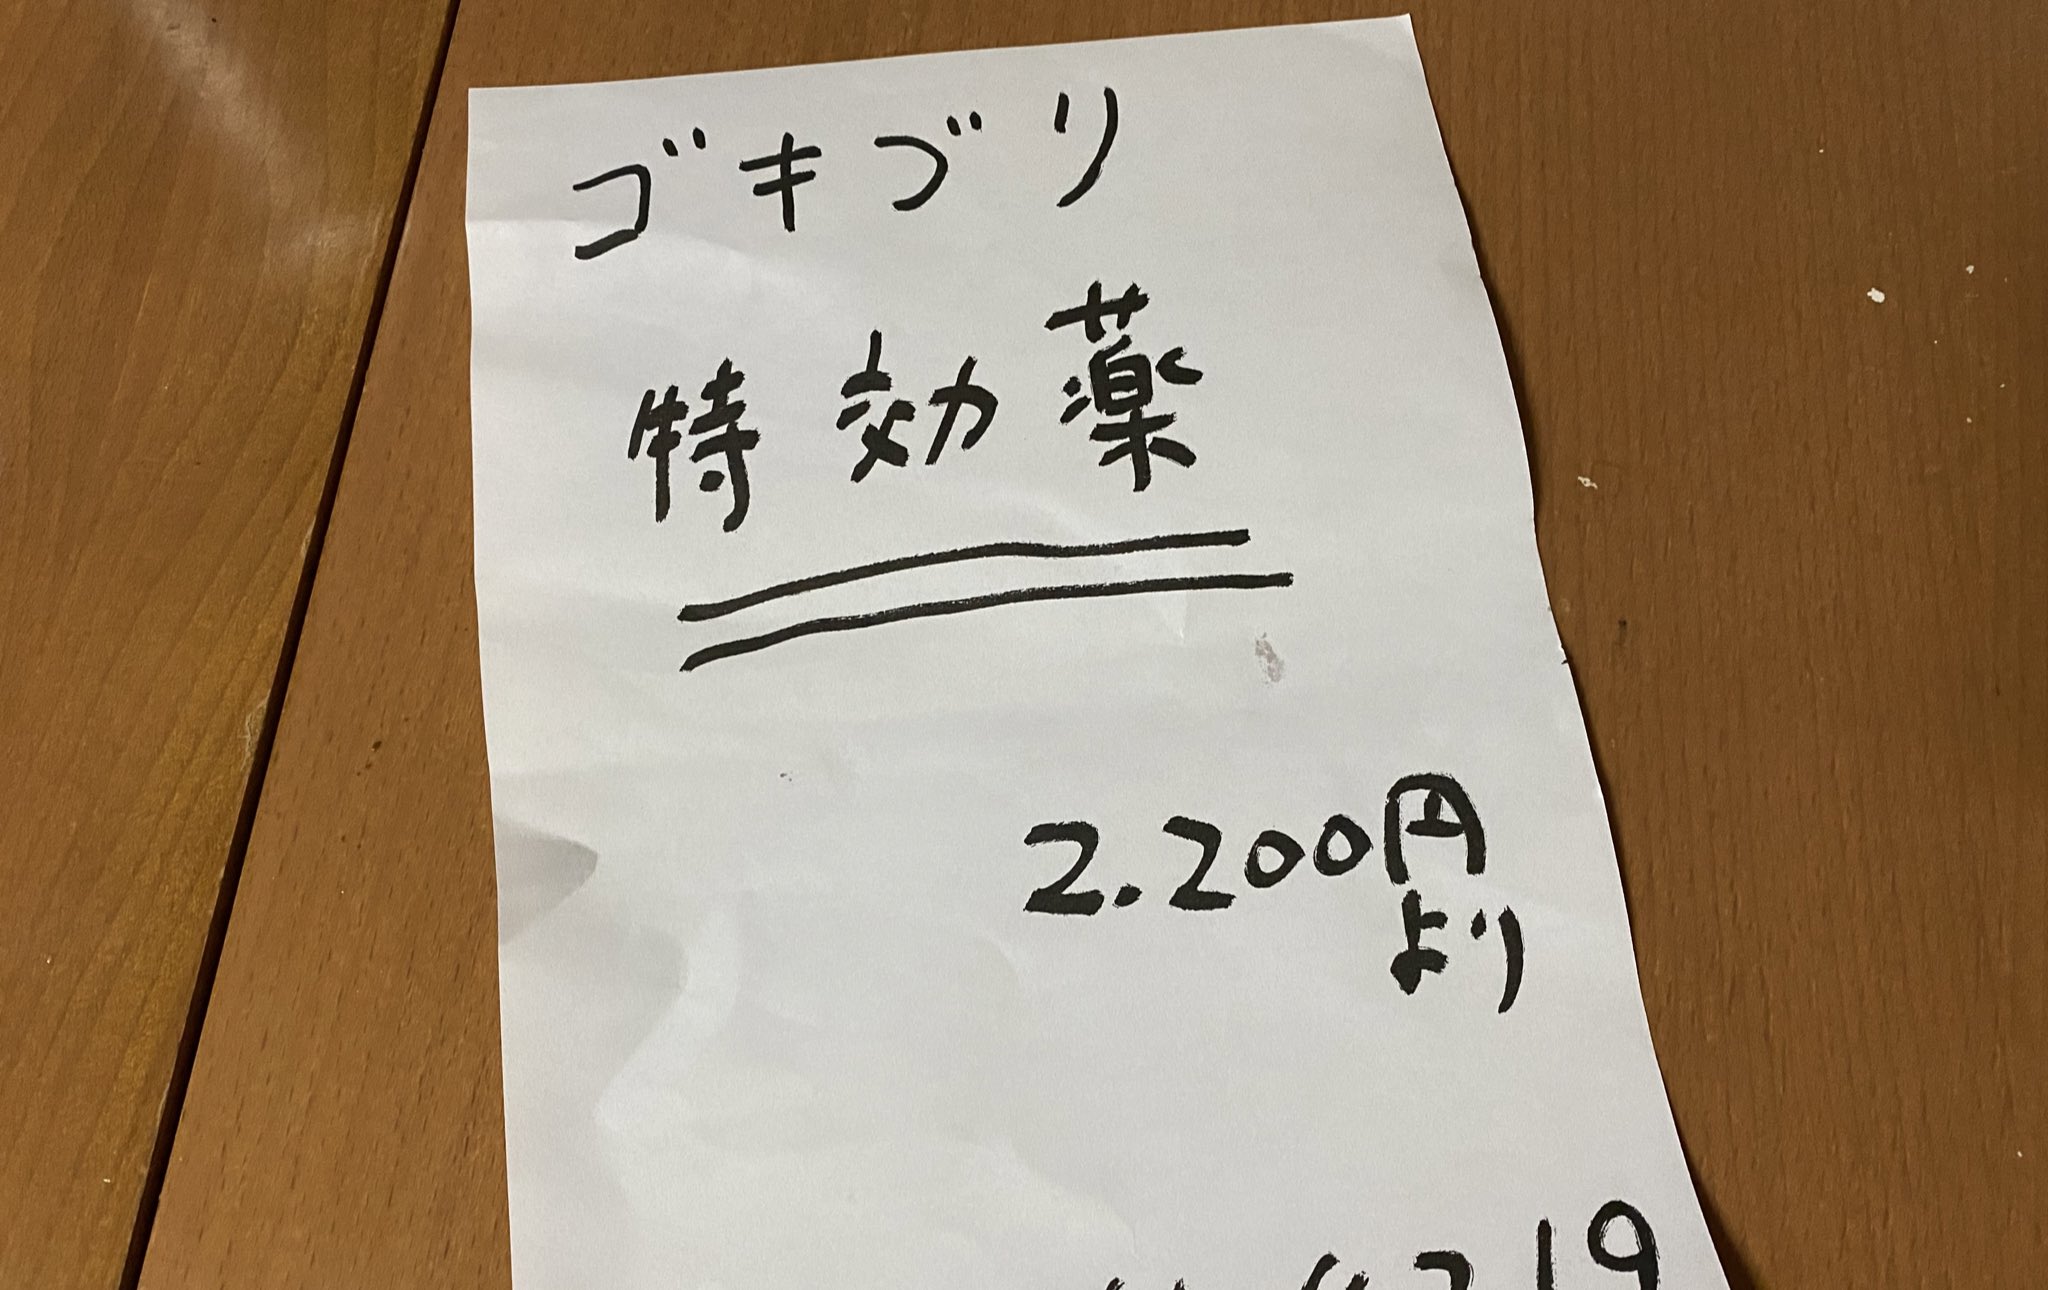 ゴキブリ
特効薬
2.200円
より
19